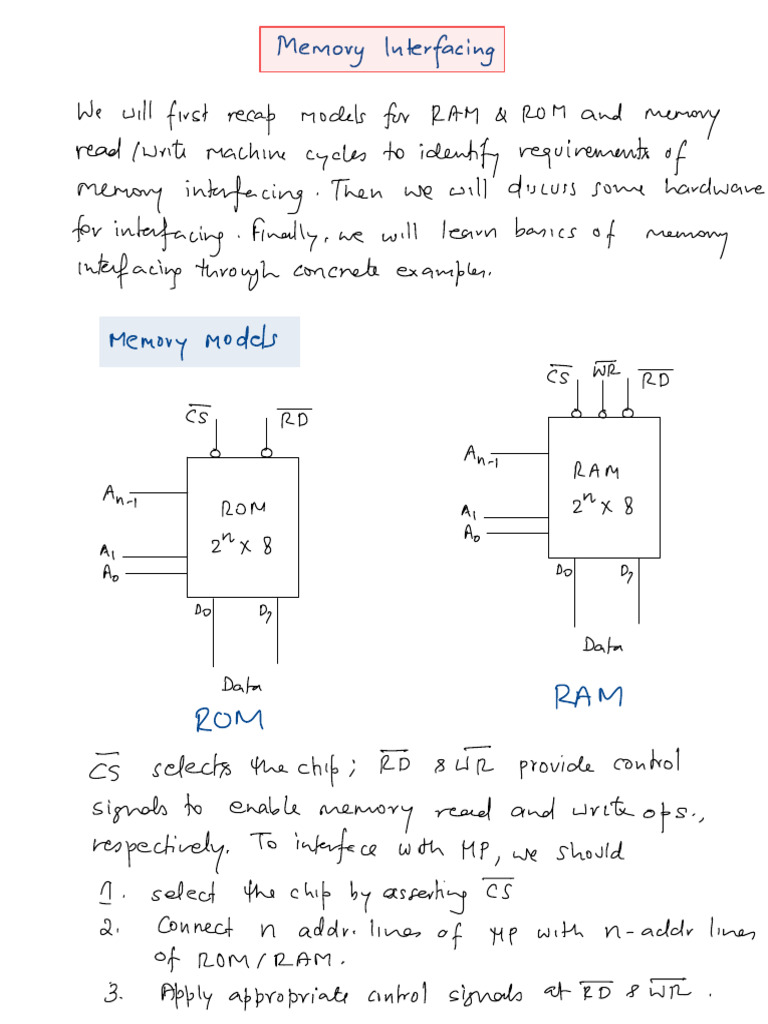 Memory Interfacing
We will first recap models for RAM & ROM and memory
read/write machine cycles to identify requirements of
memory interfacing. Then we will discuss some hardware
for interfacing. Finally, we will learn basics of memory
interfacing through concrete examples.
Memory Models
C̅S̅ R̅D̅
A_{n-1}
ROM
2^n × 8
A_1
A_0
D_0 D_7
Data
ROM
C̅S̅ W̅R̅ R̅D̅
A_{n-1}
RAM
2^n × 8
A_1
A_0
D_0 D_7
Data
RAM
C̅S̅ selects the chip; R̅D̅ & W̅R̅ provide control
signals to enable memory read and write ops.,
respectively. To interface with MP, we should
1. select the chip by asserting C̅S̅
2. Connect n addr. lines of MP with n-addr lines
of ROM/RAM.
3. Apply appropriate control signals at R̅D̅ & W̅R̅.